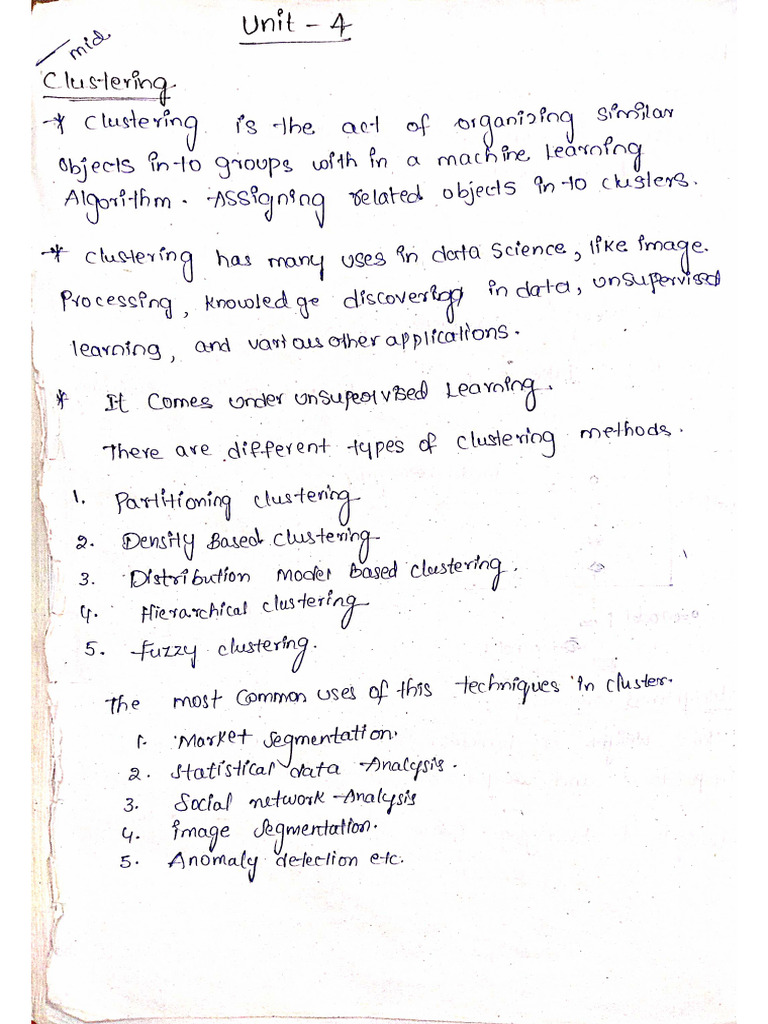 Unit - 4
mid
Clustering
* Clustering is the act of organizing similar
objects in to groups with in a machine Learning
Algorithm. Assigning related objects in to clusters.
* Clustering has many uses in data science, like image.
Processing, knowledge discovering in data, unsupervised
learning, and various other applications.
* It comes under unsupervised Learning.
There are different types of clustering methods.
1. Partitioning clustering
2. Density Based clustering
3. Distribution Model Based clustering.
4. Hierarchical clustering
5. Fuzzy clustering.
The most common uses of this techniques in cluster.
1. Market segmentation.
2. Statistical data Analysis.
3. Social network Analysis
4. image segmentation.
5. Anomaly detection etc.